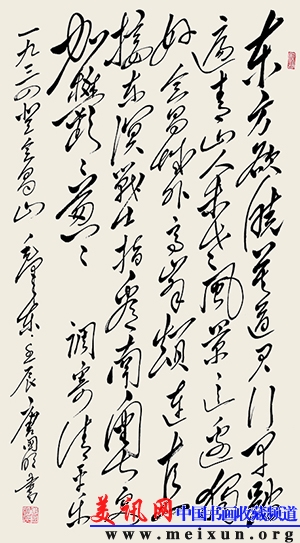 东方欲晓莫道君行早踏
遍青山人未老風景这边独
好会昌城外高峰颠连直
接东溟戰士指看南粤更
加鬱鬱葱葱 调寄清平乐
一九三四登会昌山 毛泽东 壬辰 书
美讯网 中国书画收藏频道
www.meixun.org